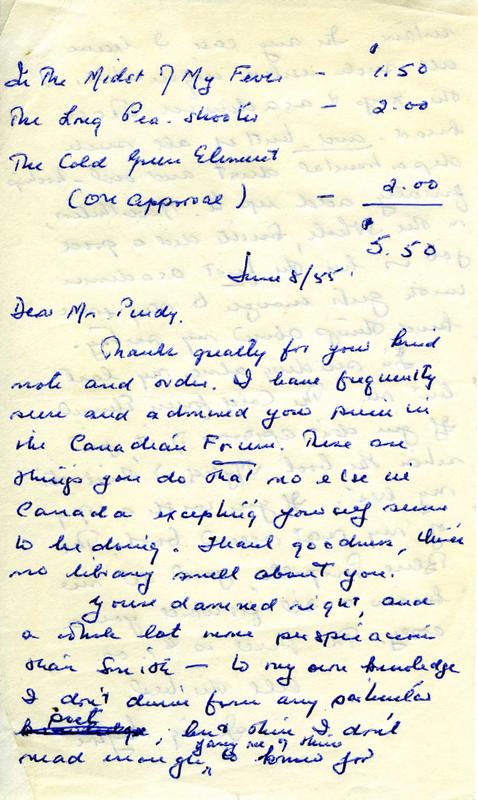 In The Midst of My Fever — $1.50
The Long Pea-Shooter — 2.00
The Cold Green Element
(On approval) — 2.00
$5.50
June 8/55
Dear Mr. Purdy.
Thanks greatly for your kind
note and order. I have frequently
seen and admired your pieces in
the Canadian Forum. There are
things you do that no else in
Canada excepting yourself seems
to be doing. Thank goodness, there's
no library smell about you.
You're damned right, and
a whole lot more perspicacious
than Smith — to my own knowledge
I don't derive from any particular
poet, but then I don't
read enough to know for